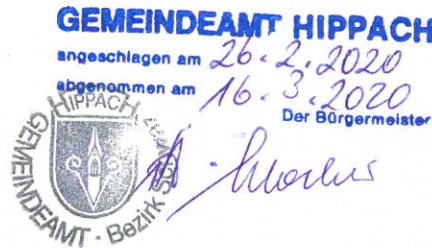 GEMEINDEAMT HIPPACH
angeschlagen am 26.2.2020
abgenommen am 16.3.2020
Der Bürgermeister
HIPPACH
GEMEINDEAMT · Bezirk